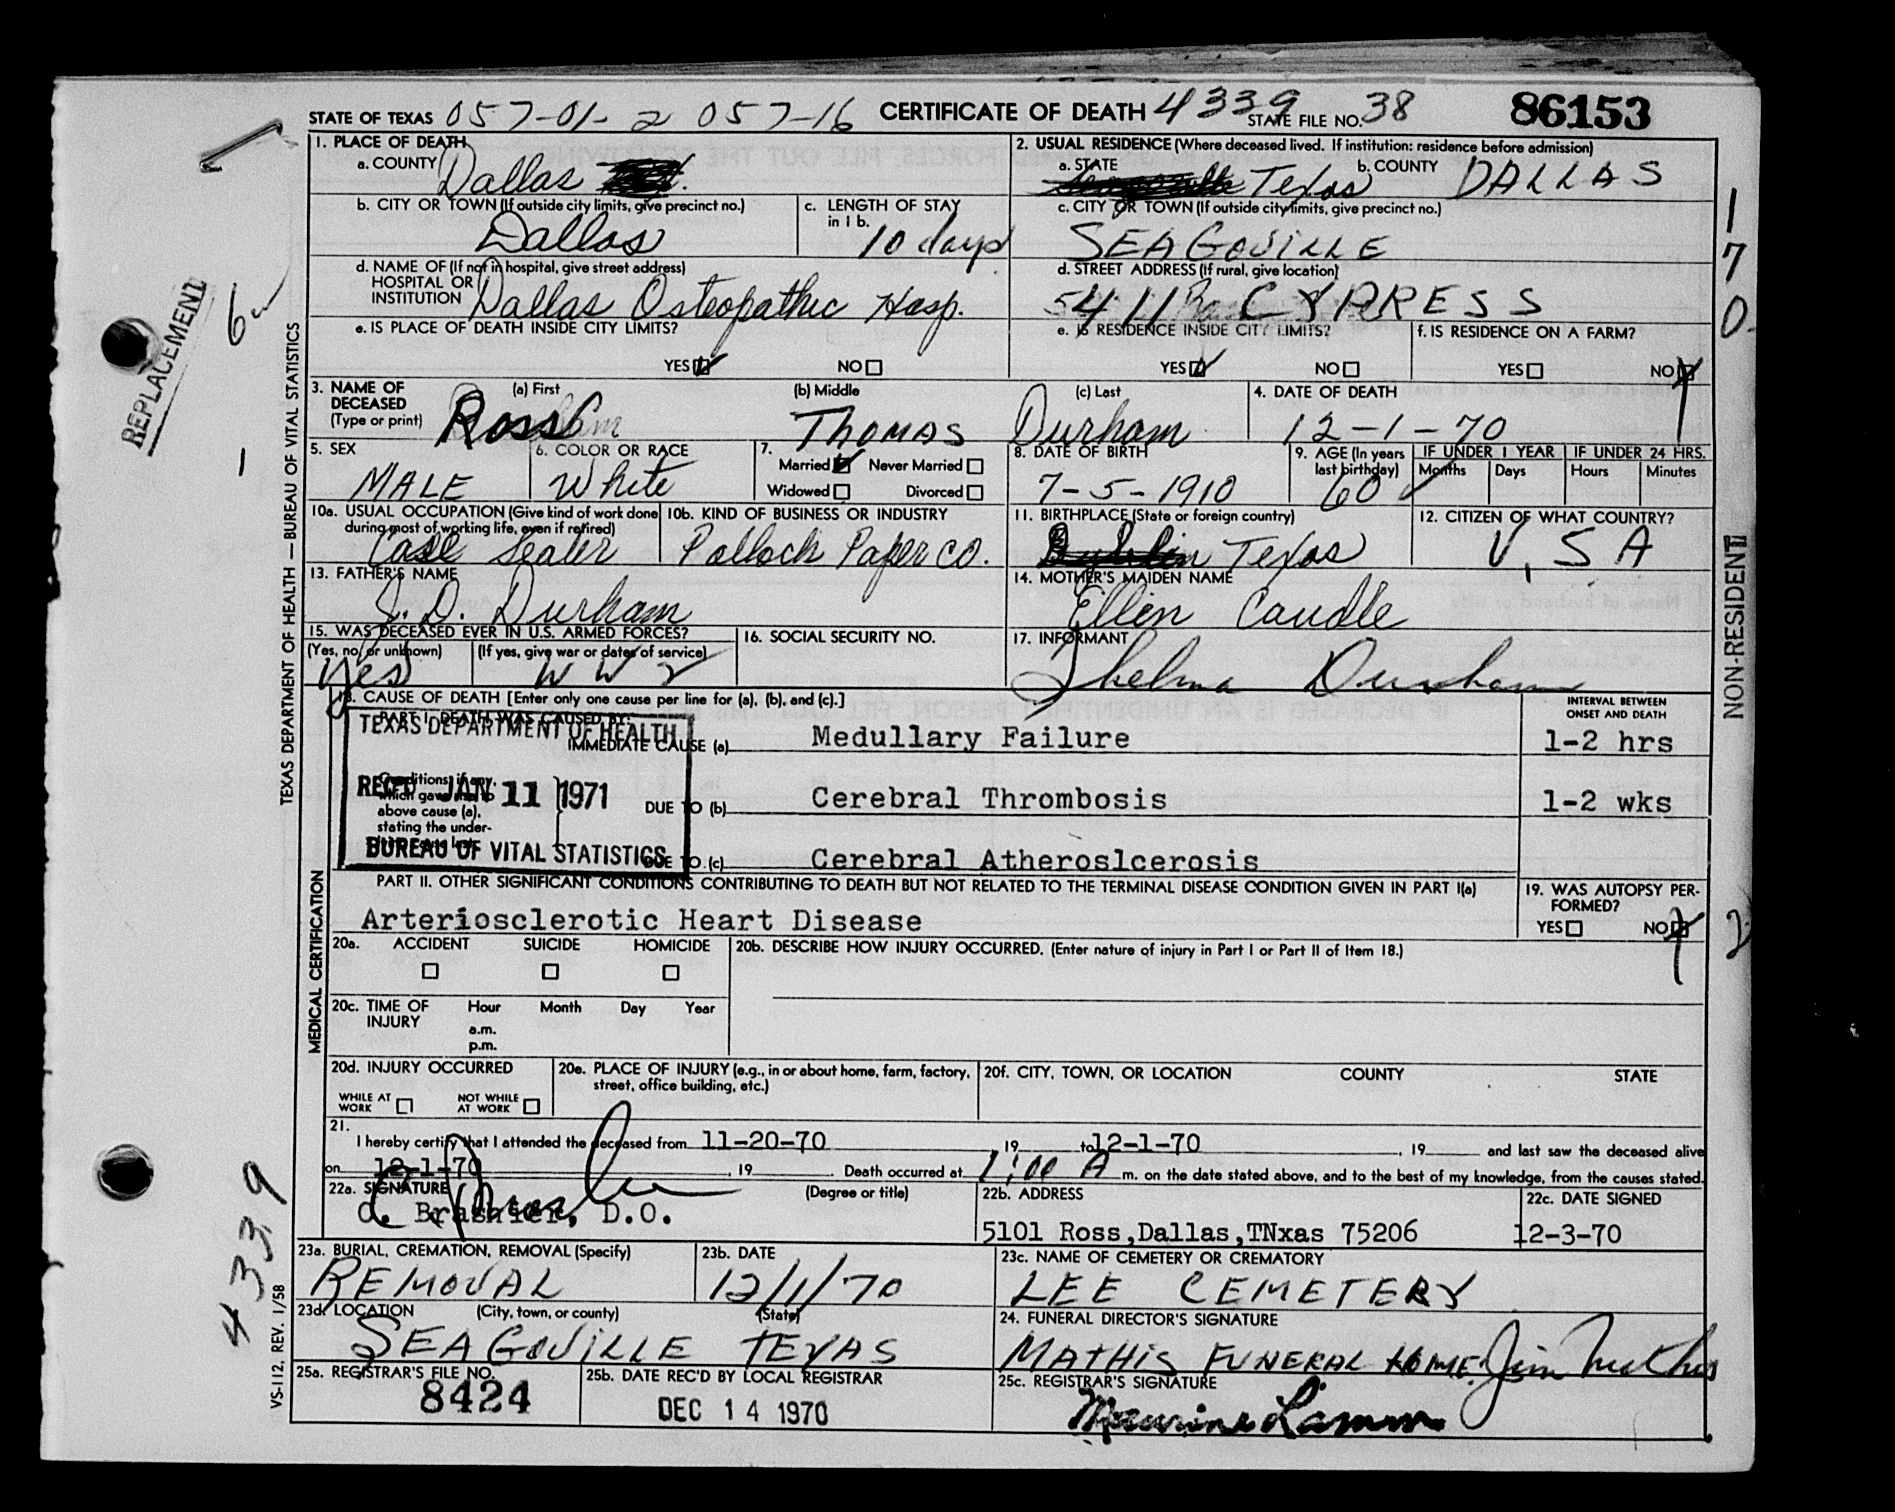 STATE OF TEXAS 057-01-2 057-16 CERTIFICATE OF DEATH 4339 STATE FILE NO. 38 86153
1. PLACE OF DEATH
a. COUNTY Dallas
2. USUAL RESIDENCE (Where deceased lived. If institution: residence before admission)
a. STATE Texas b. COUNTY DALLAS
b. CITY OR TOWN (If outside city limits, give precinct no.) Dallas
c. LENGTH OF STAY in 1 b. 10 days
c. CITY OR TOWN (If outside city limits, give precinct no.)
SEAGOVILLE
d. NAME OF (If not in hospital, give street address)
HOSPITAL OR
INSTITUTION Dallas Osteopathic Hosp.
d. STREET ADDRESS (If rural, give location)
411 CYPRESS
e. IS PLACE OF DEATH INSIDE CITY LIMITS?
YES NO
e. IS RESIDENCE INSIDE CITY LIMITS?
YES NO
f. IS RESIDENCE ON A FARM?
YES NO
3. NAME OF
DECEASED
(Type or print)
(a) First (b) Middle (c) Last
Ross Thomas Durham
4. DATE OF DEATH
12-1-70
5. SEX
MALE
6. COLOR OR RACE
White
7.
Married Never Married
Widowed Divorced
8. DATE OF BIRTH
7-5-1910
9. AGE (In years
last birthday)
60
IF UNDER 1 YEAR IF UNDER 24 HRS.
Months Days Hours Minutes
10a. USUAL OCCUPATION (Give kind of work done
during most of working life, even if retired)
Case Sealer
10b. KIND OF BUSINESS OR INDUSTRY
Pollock Paper Co.
11. BIRTHPLACE (State or foreign country)
Texas
12. CITIZEN OF WHAT COUNTRY?
U.SA
13. FATHER'S NAME
J. D. Durham
14. MOTHER'S MAIDEN NAME
Ellen Caudle
15. WAS DECEASED EVER IN U.S. ARMED FORCES?
(Yes, no, or unknown) (If yes, give war or dates of service)
yes WW2
16. SOCIAL SECURITY NO.
17. INFORMANT
Thelma Durham
18. CAUSE OF DEATH [Enter only one cause per line for (a), (b), and (c).]
INTERVAL BETWEEN
ONSET AND DEATH
PART I. DEATH WAS CAUSED BY:
IMMEDIATE CAUSE (a) Medullary Failure 1-2 hrs
Conditions, if any,
which gave rise to
above cause (a),
stating the under-
DUE TO (b) Cerebral Thrombosis 1-2 wks
DUE TO (c) Cerebral Atheroslcerosis
TEXAS DEPARTMENT OF HEALTH
REC'D JAN 11 1971
BUREAU OF VITAL STATISTICS
PART II. OTHER SIGNIFICANT CONDITIONS CONTRIBUTING TO DEATH BUT NOT RELATED TO THE TERMINAL DISEASE CONDITION GIVEN IN PART I(a)
Arteriosclerotic Heart Disease
19. WAS AUTOPSY PER-
FORMED?
YES NO
20a. ACCIDENT SUICIDE HOMICIDE
20b. DESCRIBE HOW INJURY OCCURRED. (Enter nature of injury in Part I or Part II of Item 18.)
20c. TIME OF
INJURY
Hour Month Day Year
a.m.
p.m.
20d. INJURY OCCURRED
WHILE AT
WORK
NOT WHILE
AT WORK
20e. PLACE OF INJURY (e.g., in or about home, farm, factory,
street, office building, etc.)
20f. CITY, TOWN, OR LOCATION COUNTY STATE
21.
I hereby certify that I attended the deceased from 11-20-70, 19 to 12-1-70, 19 and last saw the deceased alive
on 12-1-70, 19 Death occurred at 1:00 A m. on the date stated above, and to the best of my knowledge, from the causes stated.
22a. SIGNATURE (Degree or title)
C. Brashier, D.O.
22b. ADDRESS
5101 Ross,Dallas,TNxas 75206
22c. DATE SIGNED
12-3-70
23a. BURIAL, CREMATION, REMOVAL (Specify)
REMOVAL
23b. DATE
12/1/70
23c. NAME OF CEMETERY OR CREMATORY
LEE CEMETERY
23d. LOCATION (City, town, or county) (State)
SEAGOVILLE TEXAS
24. FUNERAL DIRECTOR'S SIGNATURE
MATHIS FUNERAL HOME. Jim Mathis
25a. REGISTRAR'S FILE NO.
8424
25b. DATE REC'D BY LOCAL REGISTRAR
DEC 14 1970
25c. REGISTRAR'S SIGNATURE
TEXAS DEPARTMENT OF HEALTH — BUREAU OF VITAL STATISTICS
MEDICAL CERTIFICATION
VS-112, REV. 1/58
REPLACEMENT
4339
170
NON-RESIDENT
2